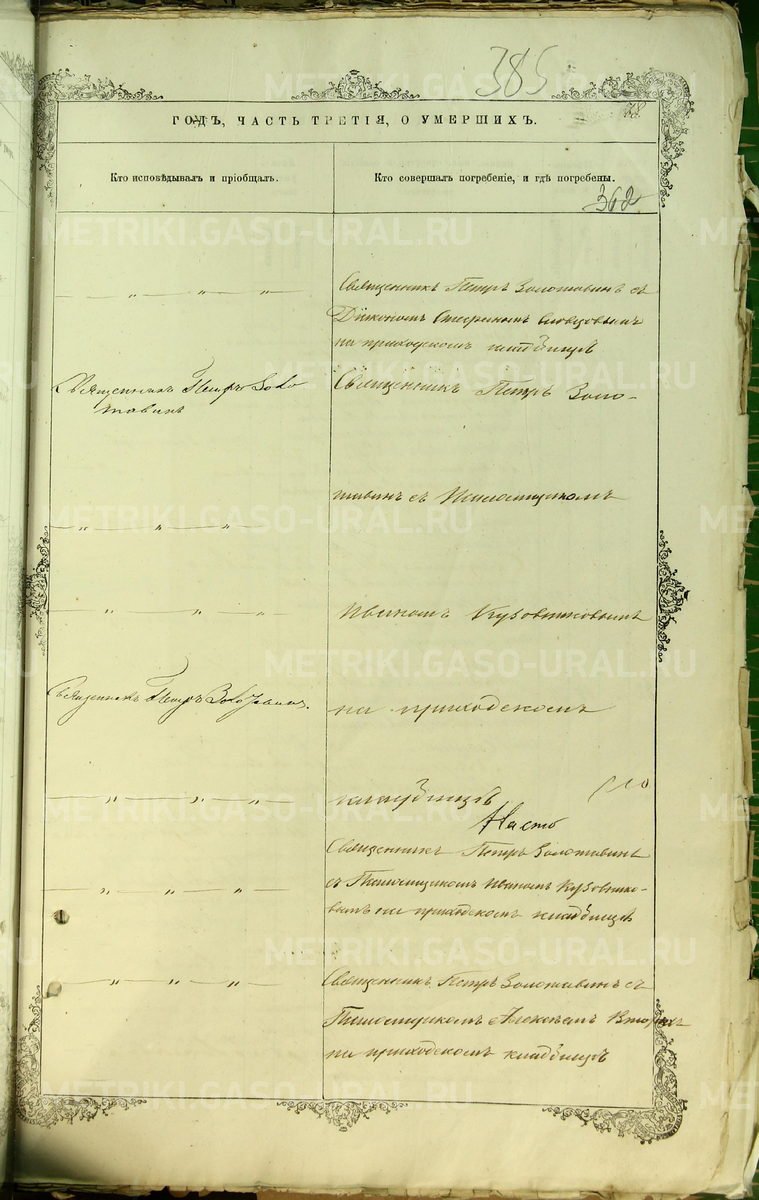 385
68.
ГОДЪ, ЧАСТЬ ТРЕТІЯ, О УМЕРШИХЪ.
Кто исповѣдывалъ и пріобщалъ.
Кто совершалъ погребеніе, и гдѣ погребены.
368
— „ — „ — „ —
Священникъ Петръ Золотавинъ съ
Діякономъ Стефаномъ
на приходскомъ кладбищѣ
Священникъ Петръ Золо
тавинъ
Священникъ Петръ Золо-
тавинъ съ Псаломщикомъ
— „ — „ — „ —
— „ — „ — „ —
Иваномъ Кузовниковымъ
Священникъ Петръ Золотавинъ.
на приходскомъ
— „ — „ — „ —
кладбищѣ
Священникъ Петръ Золотавинъ
— „ — „ — „ —
съ Псаломщикомъ Иваномъ Кузовнико-
вымъ на приходскомъ кладбищѣ
— „ — „ — „ —
Священникъ Петръ Золотавинъ съ
Псаломщикомъ Алексѣемъ
на приходскомъ кладбищѣ
METRIKI.GASO-URAL.RU